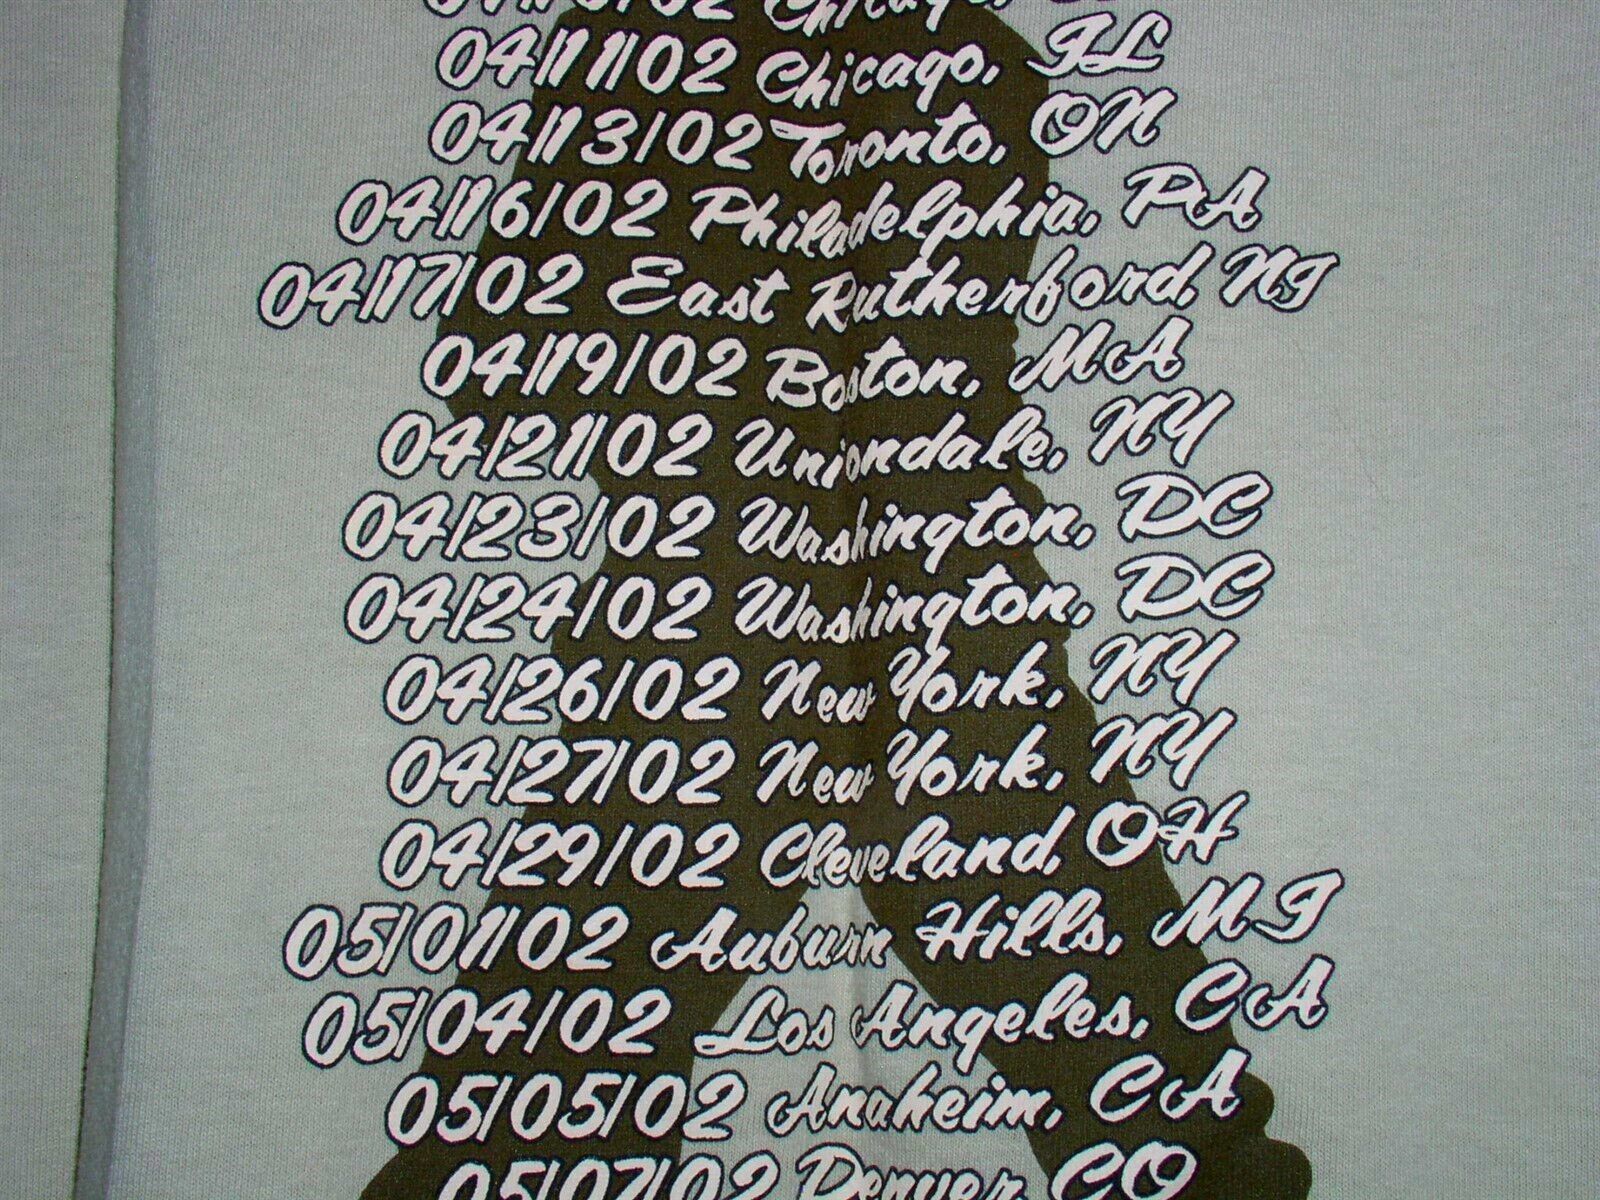 04/10/02 Chicago,
04/11/02 Chicago, IL
04/13/02 Toronto, ON
04/16/02 Philadelphia, PA
04/17/02 East Rutherford, NJ
04/19/02 Boston, MA
04/21/02 Uniondale, NY
04/23/02 Washington, DC
04/24/02 Washington, DC
04/26/02 New York, NY
04/27/02 New York, NY
04/29/02 Cleveland, OH
05/01/02 Auburn Hills, MI
05/04/02 Los Angeles, CA
05/05/02 Anaheim, CA
05/07/02 Denver CO